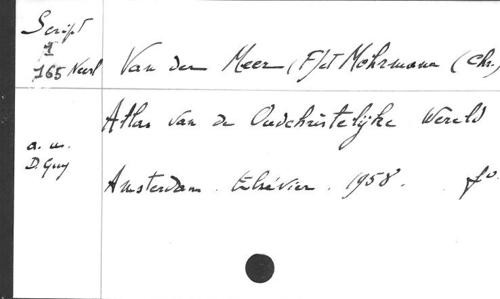 Script
1
165 Neerl
Van der Meer, (F) et Mohrmann (Chr.)
Atlas van de Oudchristelijke Wereld
a. m.
D. Guy
Amsterdam. Elsévier. 1958. fº